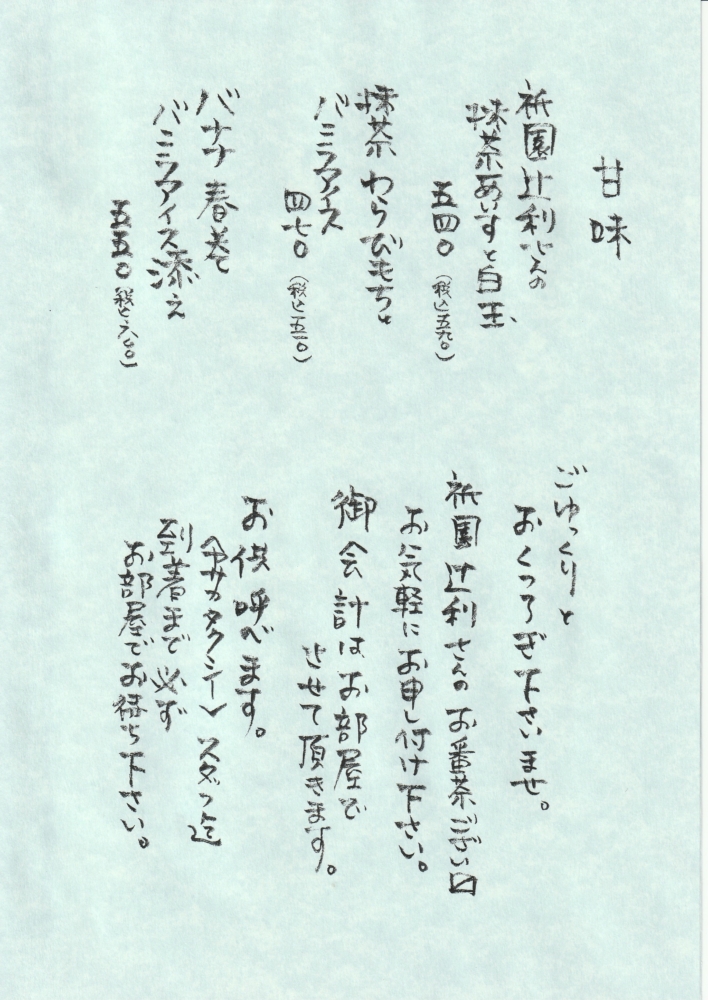 甘味
祇園辻利さんの
抹茶あいすと白玉
五四〇（税込五九〇）
抹茶わらびもちと
バニラアイス
四七〇（税込五一〇）
バナナ春巻
バニラアイス添え
五五〇（税込六〇〇）
ごゆっくりと
おくつろぎ下さいませ。
祇園辻利さんのお番茶ござい〼
お気軽にお申し付け下さい。
御会計はお部屋で
させて頂きます。
お供呼べます。
〈ヤサカタクシー〉スタッフ迄
到着まで必ず
お部屋でお待ち下さい。